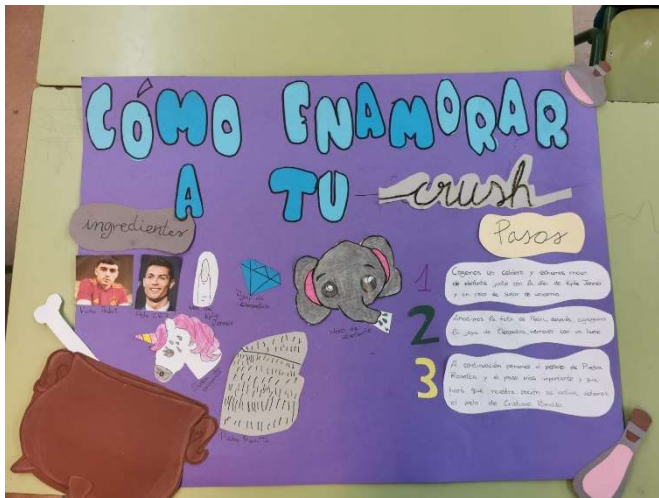 CÓMO ENAMORAR
A TU crush
ingredientes
Pasos
Uña de
Kylie
Jenner
Joya de
Cleopatra
Moco de
elefante
Piedra Rosetta
1
Cogemos un caldero y echamos moco
de elefante, junto con la uña de Kylie Jenner
y un vaso de sudor de unicornio.
2
Añadimos la foto de Pedri, después, agregamos
la joya de Cleopatra, remover con un hueso
3
A continuación ponemos el pedazo de Piedra
Rosetta y el paso más importante y que
hará que nuestra poción se active, echamos
el pelo de Cristiano Ronaldo.